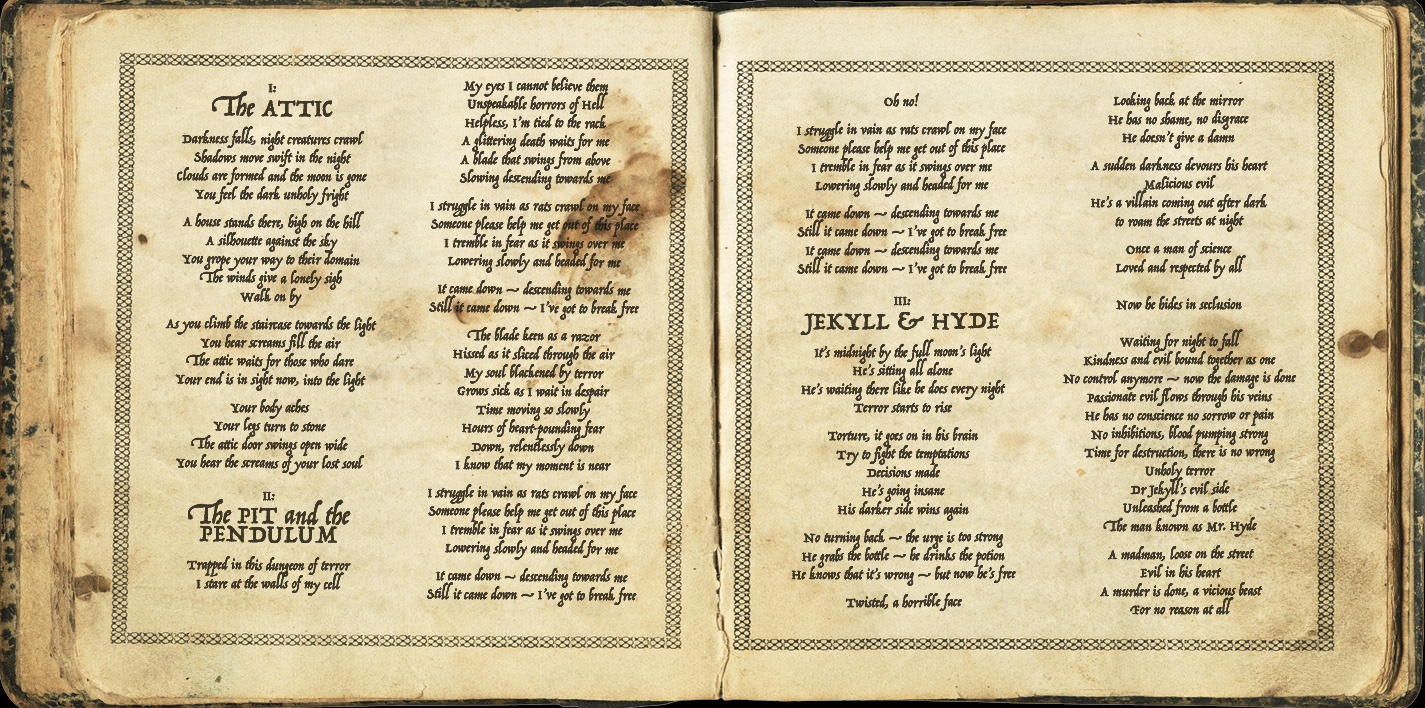 I:
The ATTIC
Darkness falls, night creatures crawl
Shadows move swift in the night
Clouds are formed and the moon is gone
You feel the dark unholy fright
A house stands there, high on the hill
A silhouette against the sky
You grope your way to their domain
The winds give a lonely sigh
Walk on by
As you climb the staircase towards the light
You hear screams fill the air
The attic waits for those who dare
Your end is in sight now, into the light
Your body aches
Your legs turn to stone
The attic door swings open wide
You hear the screams of your lost soul
II:
The PIT and the
PENDULUM
Trapped in this dungeon of terror
I stare at the walls of my cell
My eyes I cannot believe them
Unspeakable horrors of Hell
Helpless, I'm tied to the rack
A glittering death waits for me
A blade that swings from above
Slowing descending towards me
I struggle in vain as rats crawl on my face
Someone please help me get out of this place
I tremble in fear as it swings over me
Lowering slowly and headed for me
It came down ~ descending towards me
Still it came down ~ I've got to break free
The blade keen as a razor
Hissed as it sliced through the air
My soul blackened by terror
Grows sick as I wait in despair
Time moving so slowly
Hours of heart-pounding fear
Down, relentlessly down
I know that my moment is near
I struggle in vain as rats crawl on my face
Someone please help me get out of this place
I tremble in fear as it swings over me
Lowering slowly and headed for me
It came down ~ descending towards me
Still it came down ~ I've got to break free
Oh no!
I struggle in vain as rats crawl on my face
Someone please help me get out of this place
I tremble in fear as it swings over me
Lowering slowly and headed for me
It came down ~ descending towards me
Still it came down ~ I've got to break free
It came down ~ descending towards me
Still it came down ~ I've got to break free
III:
JEKYLL & HYDE
It's midnight by the full moon's light
He's sitting all alone
He's waiting there like he does every night
Terror starts to rise
Torture, it goes on in his brain
Try to fight the temptations
Decisions made
He's going insane
His darker side wins again
No turning back ~ the urge is too strong
He grabs the bottle ~ he drinks the potion
He knows that it's wrong ~ but now he's free
Twisted, a horrible face
Looking back at the mirror
He has no shame, no disgrace
He doesn't give a damn
A sudden darkness devours his heart
Malicious evil
He's a villain coming out after dark
to roam the streets at night
Once a man of science
Loved and respected by all
Now he hides in seclusion
Waiting for night to fall
Kindness and evil bound together as one
No control anymore ~ now the damage is done
Passionate evil flows through his veins
He has no conscience no sorrow or pain
No inhibitions, blood pumping strong
Time for destruction, there is no wrong
Unholy terror
Dr Jekyll's evil side
Unleashed from a bottle
The man known as Mr. Hyde
A madman, loose on the street
Evil in his heart
A murder is done, a vicious beast
For no reason at all